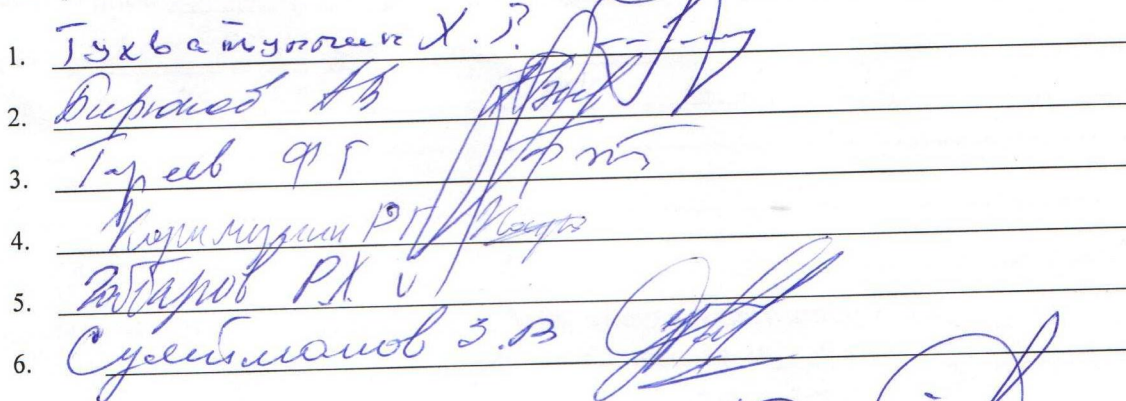 1. Тухватуллин Х.Г.
2. Бирюков АВ
3. Гареев ФГ
4. Каримуллин РГ
5. Гаттаров Р.Х
6. Сулейманов З.В